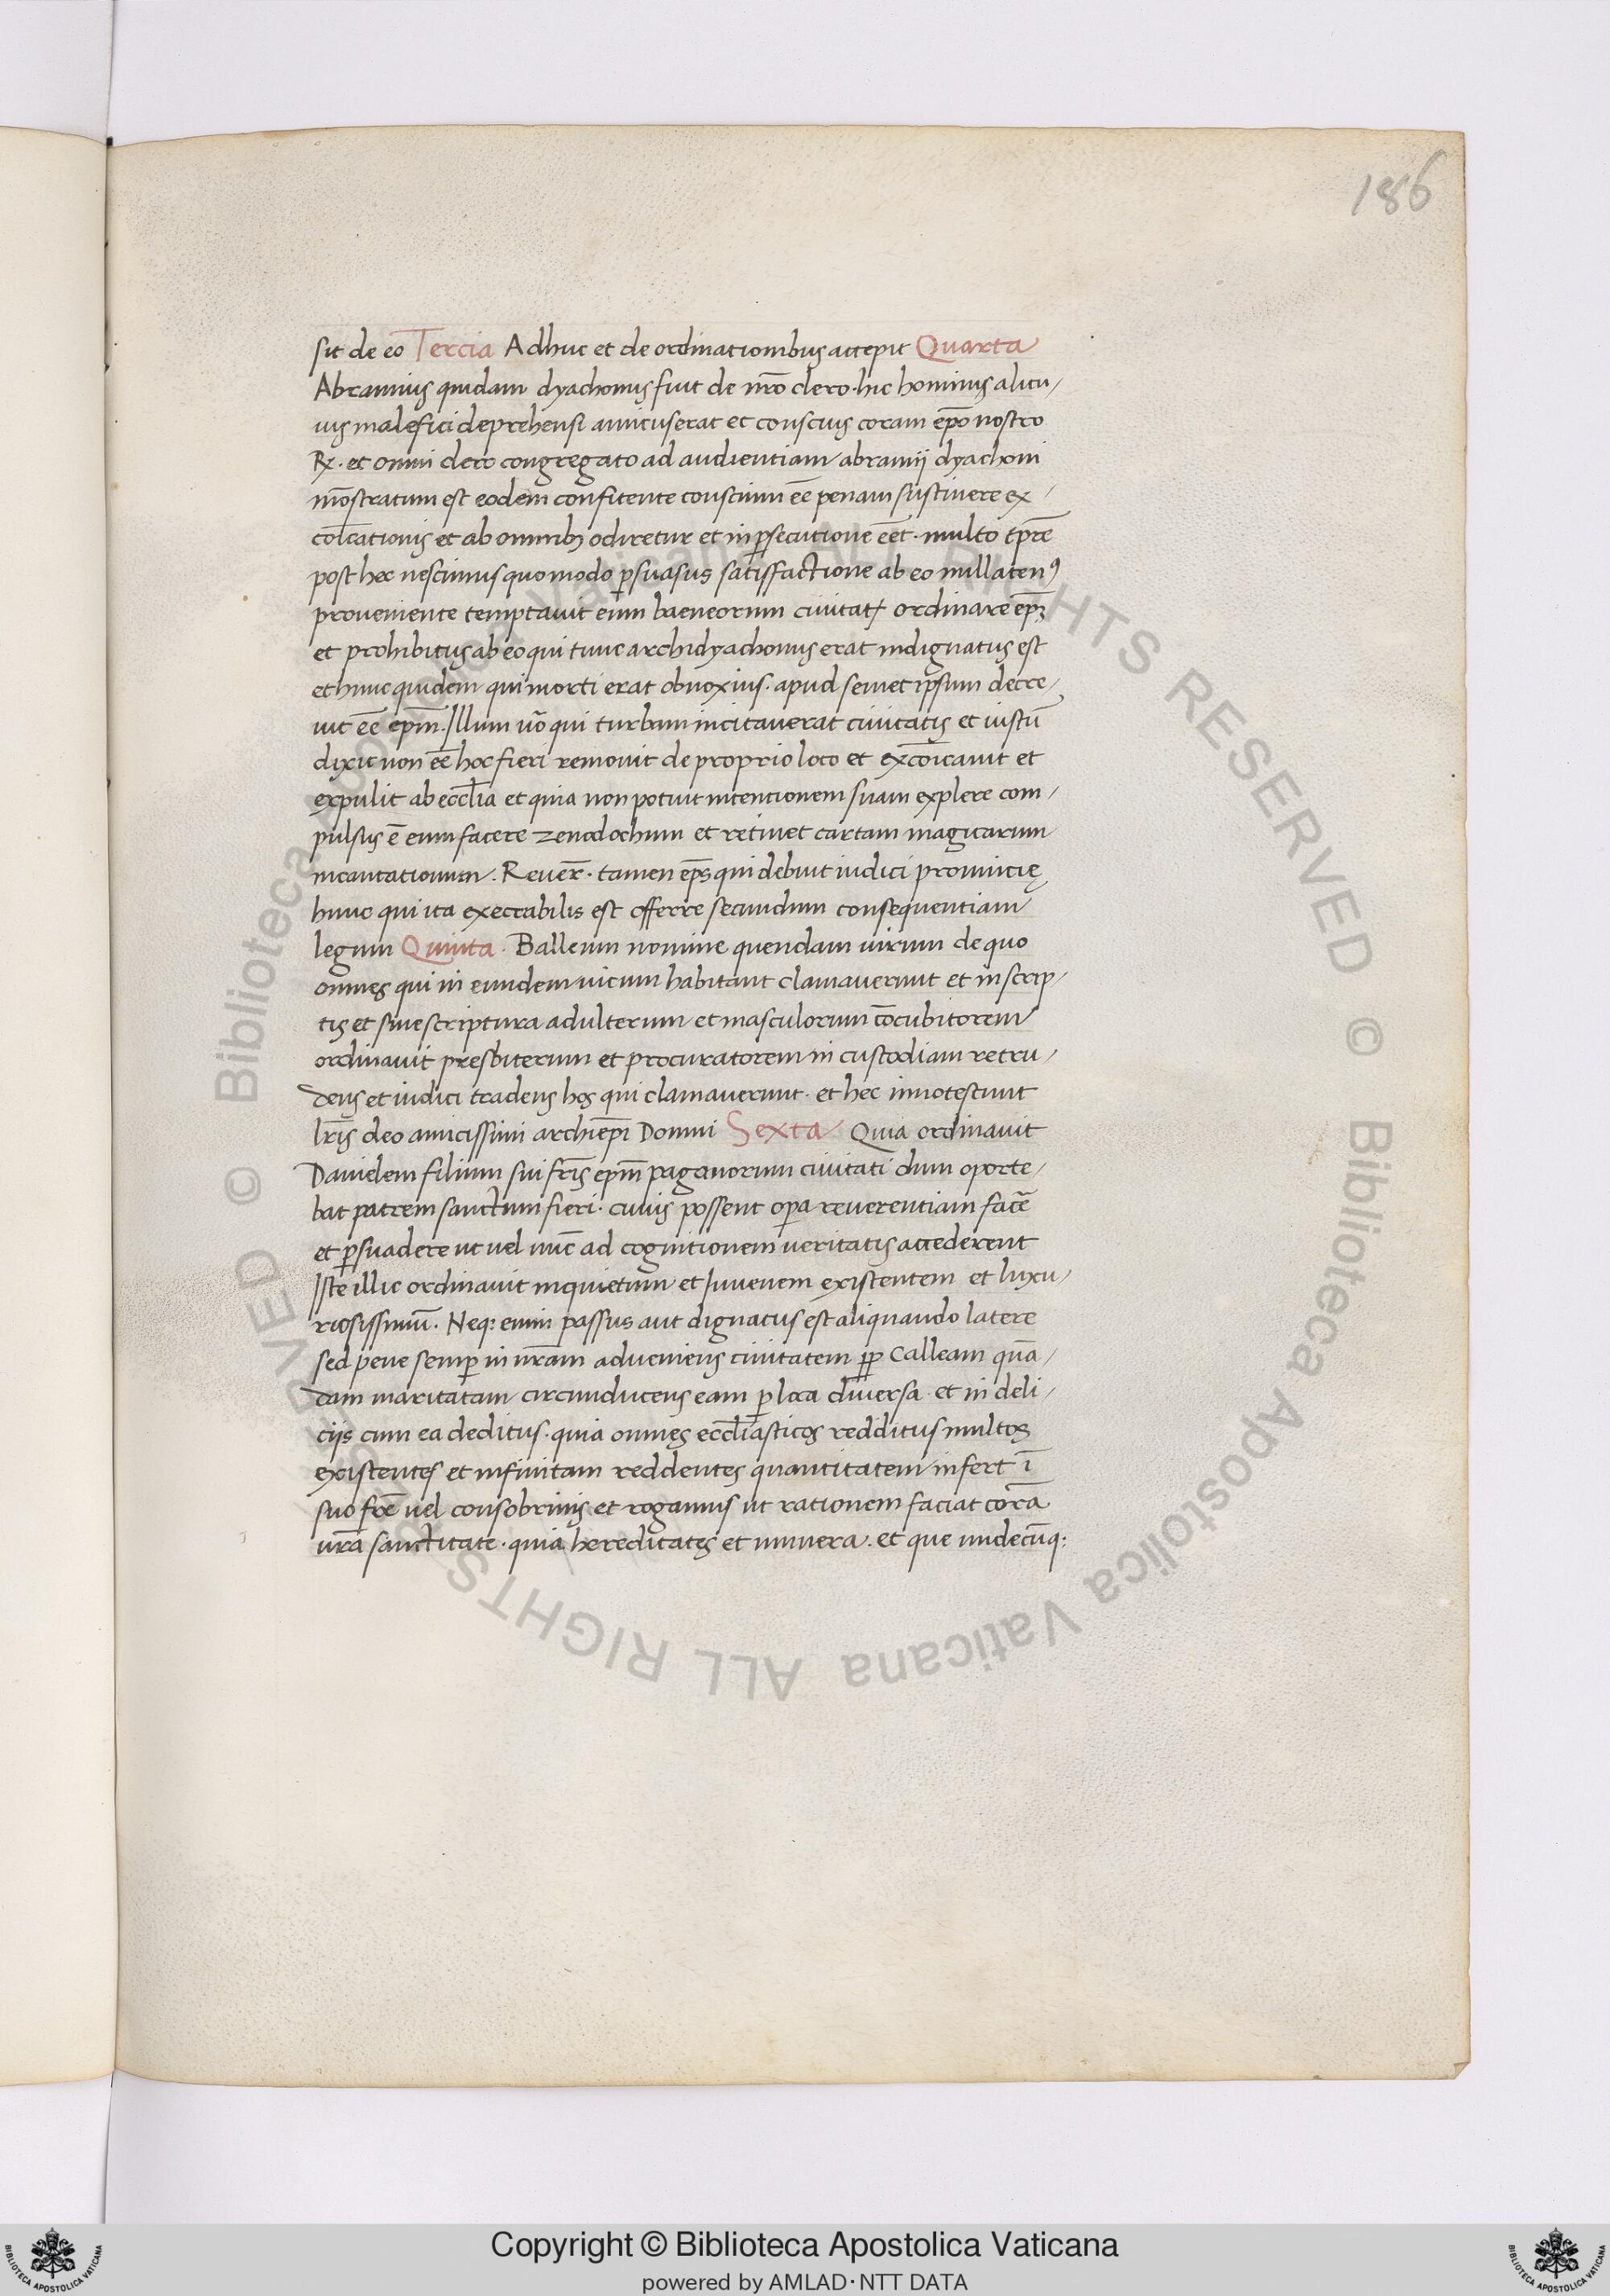 186
sit de eo Tercia Adhuc et de ordinationibus accepit Quarta
Abramius quidam dyachonus fuit de nr̄o clero · hic hominis alicu/
ius malefici deprehensi amicus erat et conscius coram ep̄o nostro
R. et omni clero congregato ad audientiam abramij dyachoni
mōstratum est eodem confitente conscium eē penam sustinere ex/
cōicationis et ab omnibꝫ odiretur et in ꝑsecutione eēt · multo tp̄re
post hec nescimus quomodo ꝑsuasus satisfactione ab eo nullatenꝰ
proveniente temptavit eum baeneorum civitatꝭ ordinare ep̄ꝫ
et prohibitus ab eo qui tunc archidyachonus erat indignatus est
et hunc quidem qui morti erat obnoxius · apud semet ipsum decre/
vit eē ep̄m · Illum v̄o qui turbam incitaverat civitatis et iustū
dixit non eē hoc fieri removit de proprio loco et excōicavit et
expulit ab eccl̄ia et quia non potuit intentionem suam explere com/
pulsus ē eum facere zenodochum et retinet cartam magicarum
incantationum. Rever̄ · tamen ep̄s qui debuit iudici provincię
hunc qui ita execrabilis est offerre secundum consequentiam
legum Quinta · Balleum nomine quendam virum de quo
omnes qui in eundem vicum habitant clamaverunt et in scrip/
tis et sine scriptura adulterum et masculorum cōcubitorem
ordinavit presbiterum et procuratorem in custodiam retru/
dens et iudici tradens hos qui clamaverunt · et hec innotescunt
lr̄is deo amicissimi archiep̄i Domni Sexta Quia ordinavit
Danielem filium sui fr̄is ep̄m paganorum civitati dum oporte/
bat patrem sanctum fieri · cuius possent oꝑa reverentiam facē
et ꝑsuadere ut vel nūc ad cognitionem veritatis accederent
Iste illic ordinavit inquietum et Iuvenem existentem et luxu/
riosissimū. Neqꝫ enim passus aut dignatus est aliquando latere
sed pene semꝑ in nr̄am adveniens civitatem ꝑꝑ Calleam quā/
dam maritatam circunducens eam ꝑ loca diversa · et in deli/
ciis cum ea deditus · quia omnes eccl̄iasticos redditus multos
existentes et infinitam reddentes quantitatem infert ī
suo fr̄e vel consobrinis et rogamus ut rationem faciat corā
vr̄a sanctitate · quia hereditates et munera · et que undecūqꝫ
© Biblioteca Apostolica Vaticana ALL RIGHTS RESERVED © Biblioteca Apostolica Vaticana ALL RIGHTS RESERVED
Copyright © Biblioteca Apostolica Vaticana
powered by AMLAD·NTT DATA
BIBLIOTECA APOSTOLICA VATICANA
BIBLIOTECA APOSTOLICA VATICANA